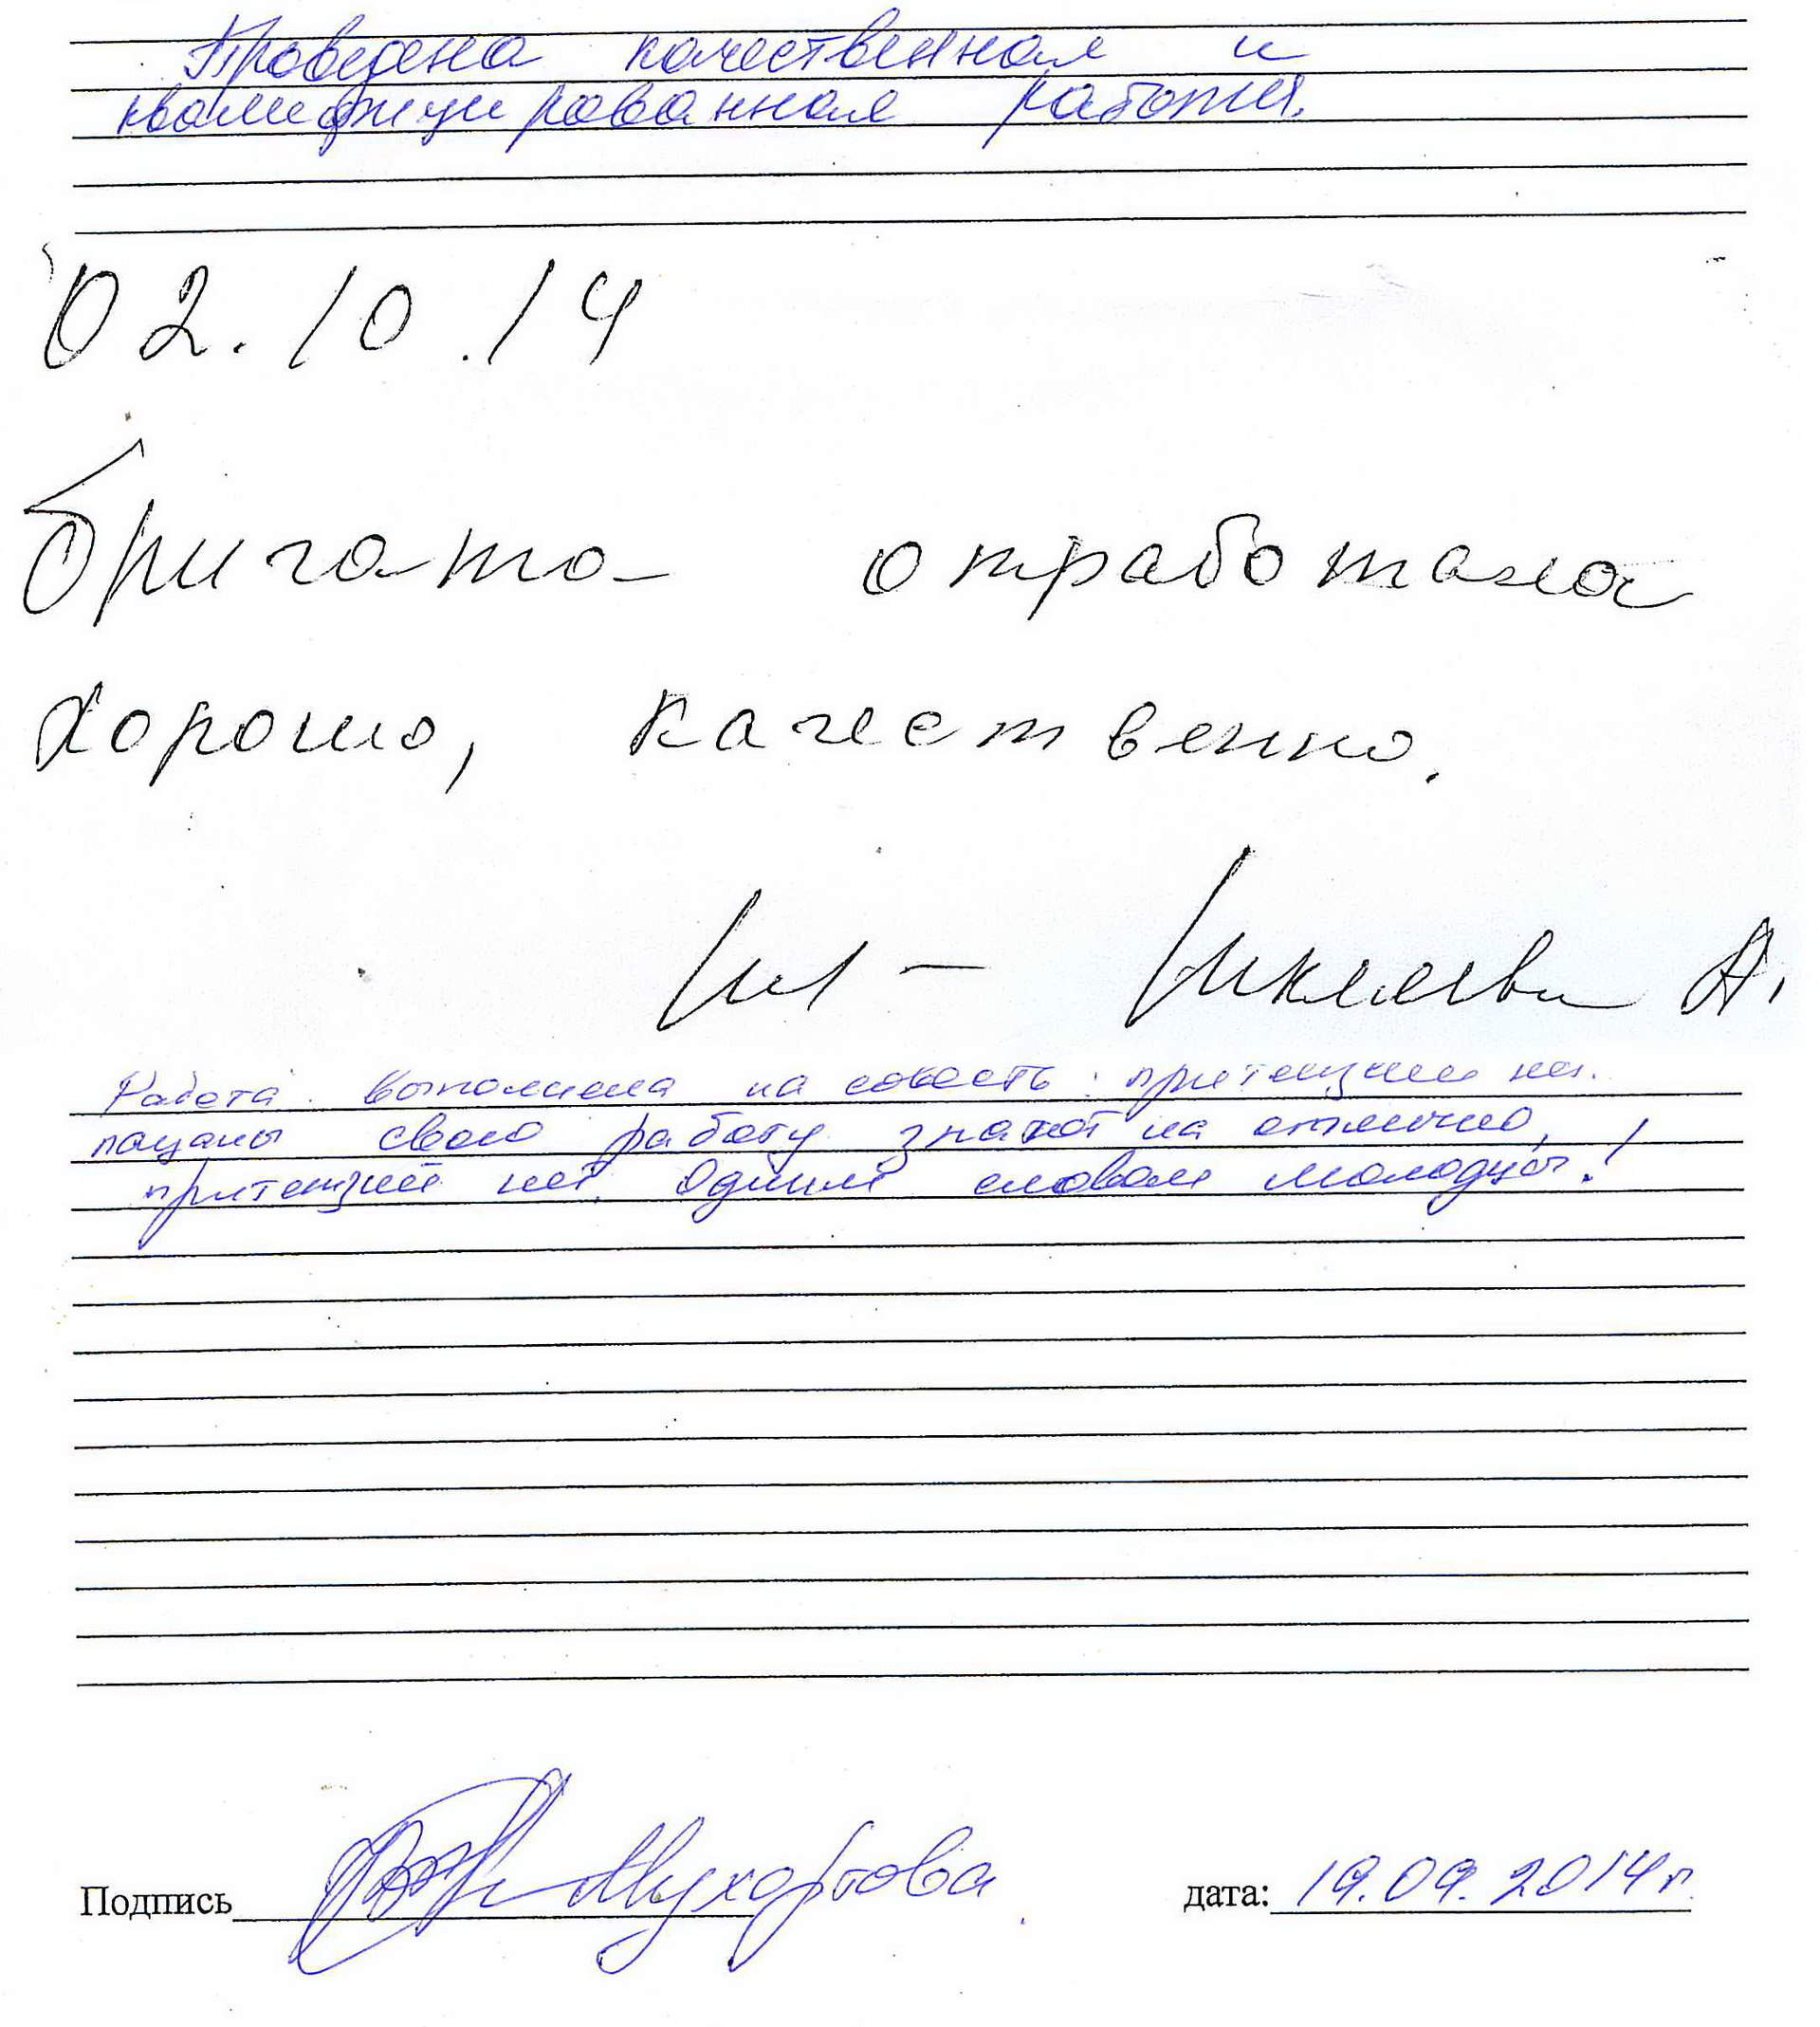 Проведена качественная и
квалифицированная работа.
02.10.14
Бригата отработала
хорошо, качественно.
А.
Работа выполнена на совесть. притензии нет.
пацаны свою работу знают на отлично,
притензий нет. Одним словом молодцы!
Подпись Мухортова дата: 19.09.2014 г.